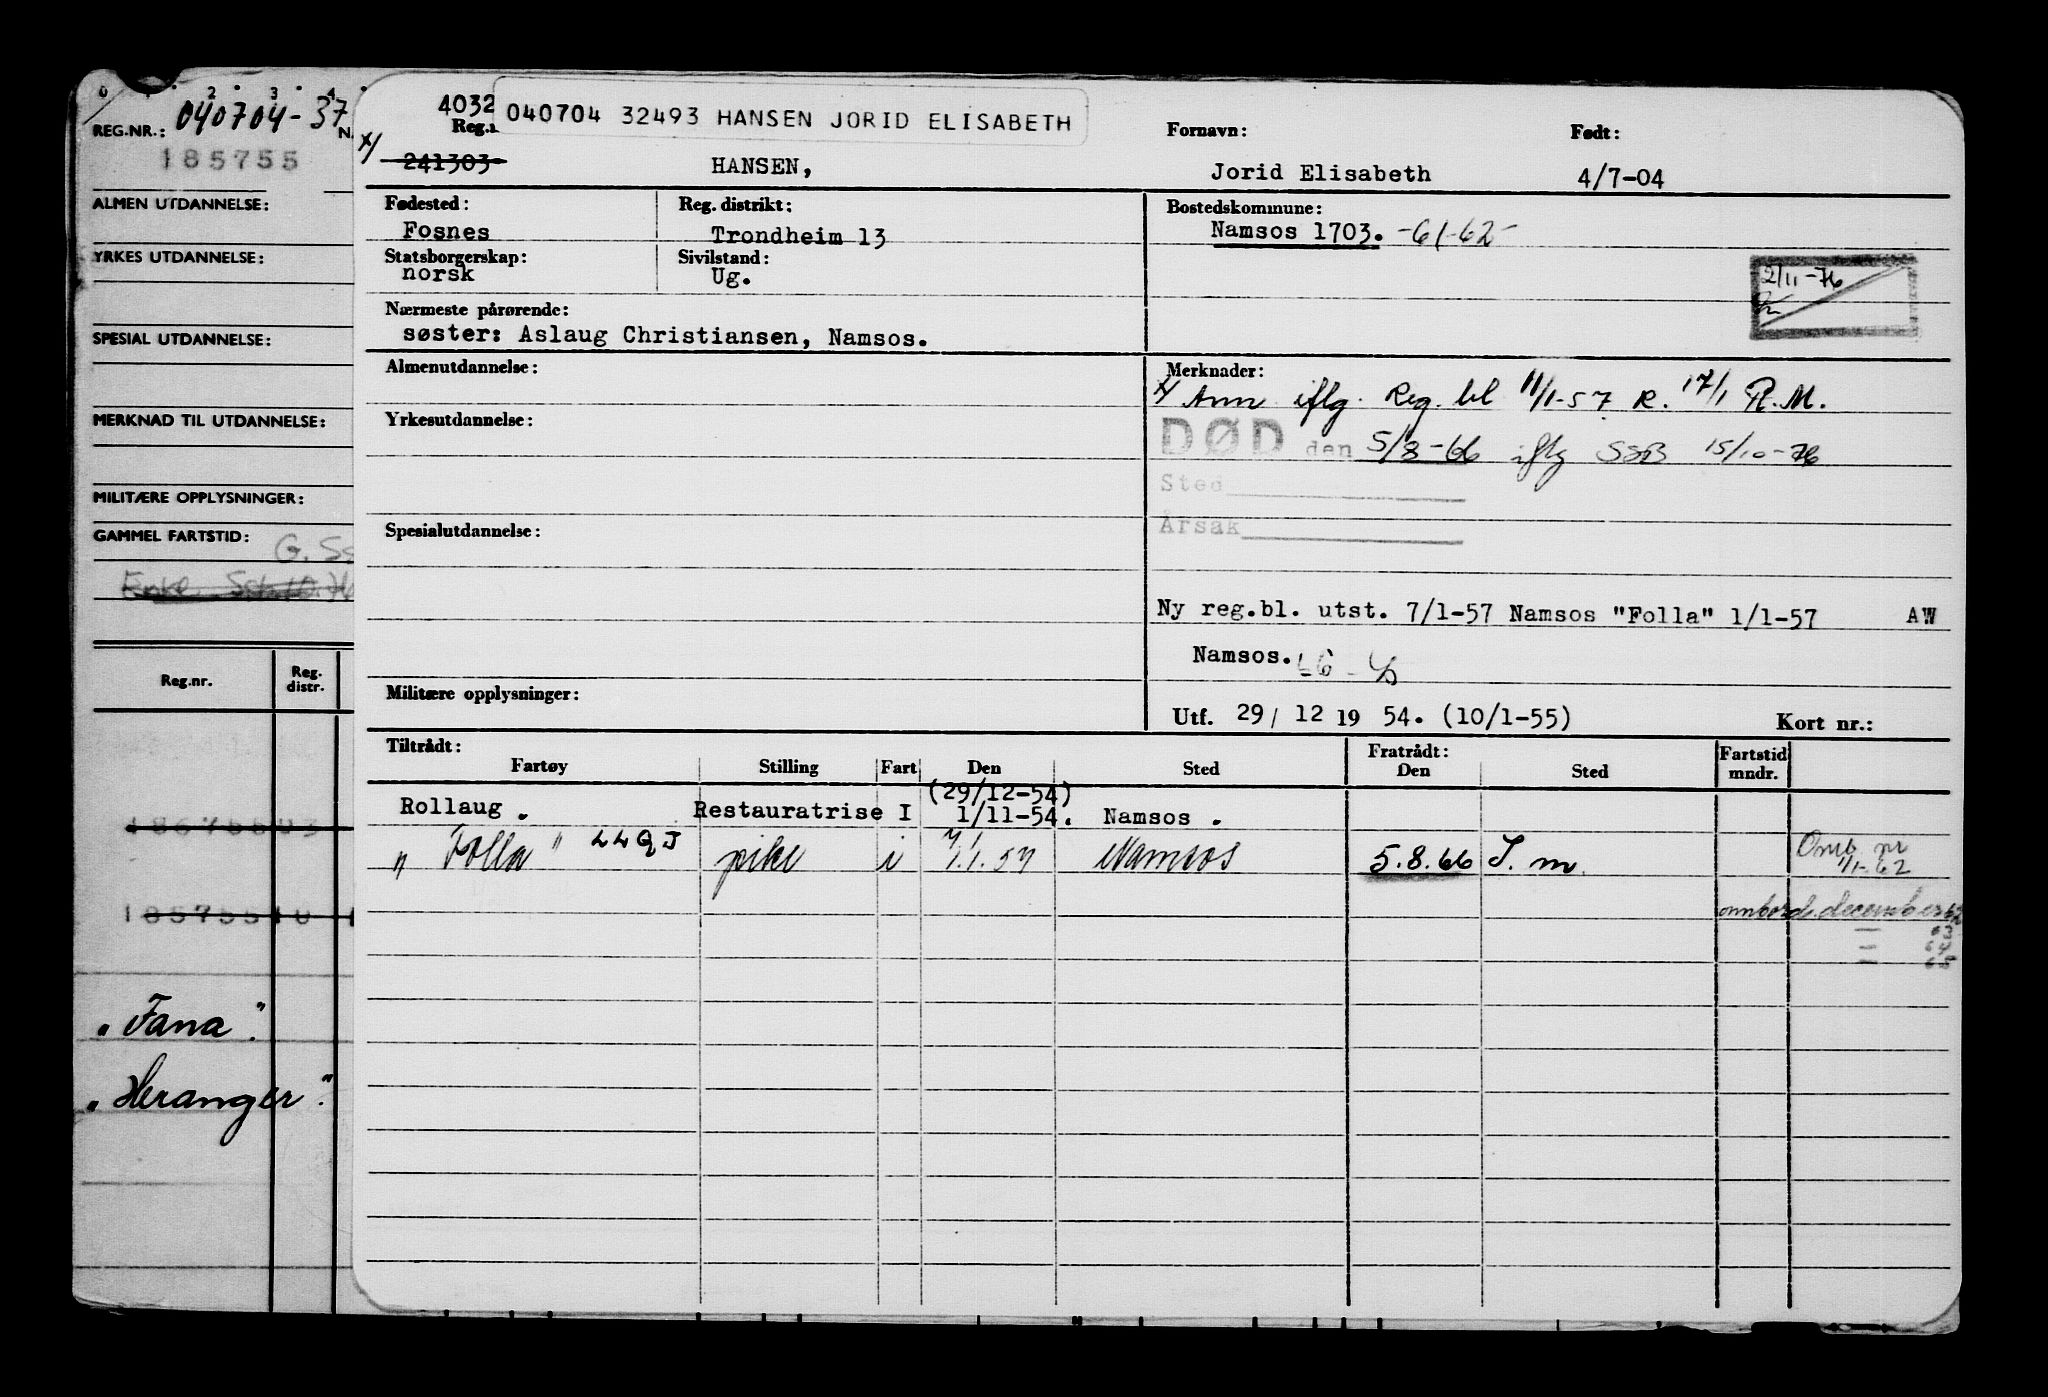 0 1 2 3 4
REG.NR.: 040704-37 N
185755
ALMEN UTDANNELSE:
YRKES UTDANNELSE:
SPESIAL UTDANNELSE:
MERKNAD TIL UTDANNELSE:
MILITÆRE OPPLYSNINGER:
GAMMEL FARTSTID:
Reg.nr.
Reg. distr.
185755 10
"Fana".
"Heranger".
4032
040704 32493 HANSEN JORID ELISABETH
Reg.n
Fornavn:
Født:
x/ 241303
HANSEN,
Jorid Elisabeth
4/7-04
Fødested:
Reg. distrikt:
Bostedskommune:
Fosnes
Trondheim 13
Namsos 1703. -61-62-
Statsborgerskap:
Sivilstand:
norsk
Ug.
2/11-76
Nærmeste pårørende:
søster: Aslaug Christiansen, Namsos.
Almenutdannelse:
Merknader:
x/ Ann iflg. Reg. bl 11/1-57 R. 17/1 R.M.
Yrkesutdannelse:
DØD den 5/8-66 iflg SSB 15/10-76
Sted
Årsak
Spesialutdannelse:
Ny reg.bl. utst. 7/1-57 Namsos "Folla" 1/1-57 AW
Namsos.
Militære opplysninger:
Utf. 29/ 12 19 54. (10/1-55)
Kort nr.:
Tiltrådt:
Fratrådt:
Fartstid mndr.
Fartøy
Stilling
Fart
Den
Sted
Den
Sted
(29/12-54)
Rollaug.
Restauratrise
I
1/11-54.
Namsos.
" Folla" LLQJ
pike
i
1.1.57
Namsos
5.8.66
S. m.
Omb pr 1/1-62
ombord. december 62
— 63
— 64
— 65